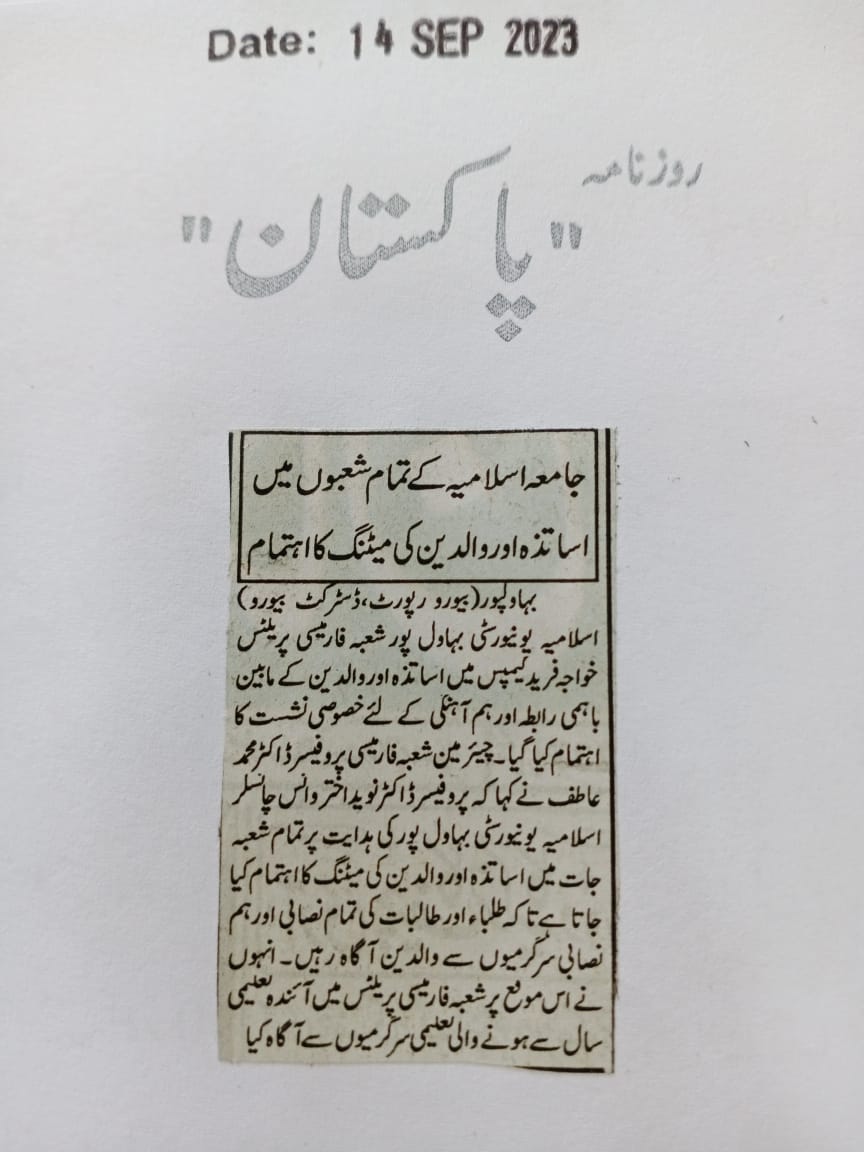 Date: 14 SEP 2023
روزنامہ
"پاکستان"
جامعہ اسلامیہ کے تمام شعبوں میں
اساتذہ اور والدین کی میٹنگ کا اہتمام
بہاولپور (بیورو رپورٹ، ڈسٹرکٹ بیورو)
اسلامیہ یونیورسٹی بہاول پور شعبہ فارمیسی پریٹس
خواجہ فرید کیمپس میں اساتذہ اور والدین کے مابین
باہمی رابطہ اور ہم آہنگی کے لئے خصوصی نشست کا
اہتمام کیا گیا۔ چیئر مین شعبہ فارمیسی پروفیسر ڈاکٹر محمد
عاطف نے کہا کہ پروفیسر ڈاکٹر نوید اختر وائس چانسلر
اسلامیہ یونیورسٹی بہاول پور کی ہدایت پر تمام شعبہ
جات میں اساتذہ اور والدین کی میٹنگ کا اہتمام کیا
جاتا ہے تا کہ طلباء اور طالبات کی تمام نصابی اور ہم
نصابی سرگرمیوں سے والدین آگاہ رہیں۔ انہوں
نے اس موقع پر شعبہ فارمیسی پریٹس میں آئندہ تعلیمی
سال سے ہونے والی تعلیمی سرگرمیوں سے آگاہ کیا